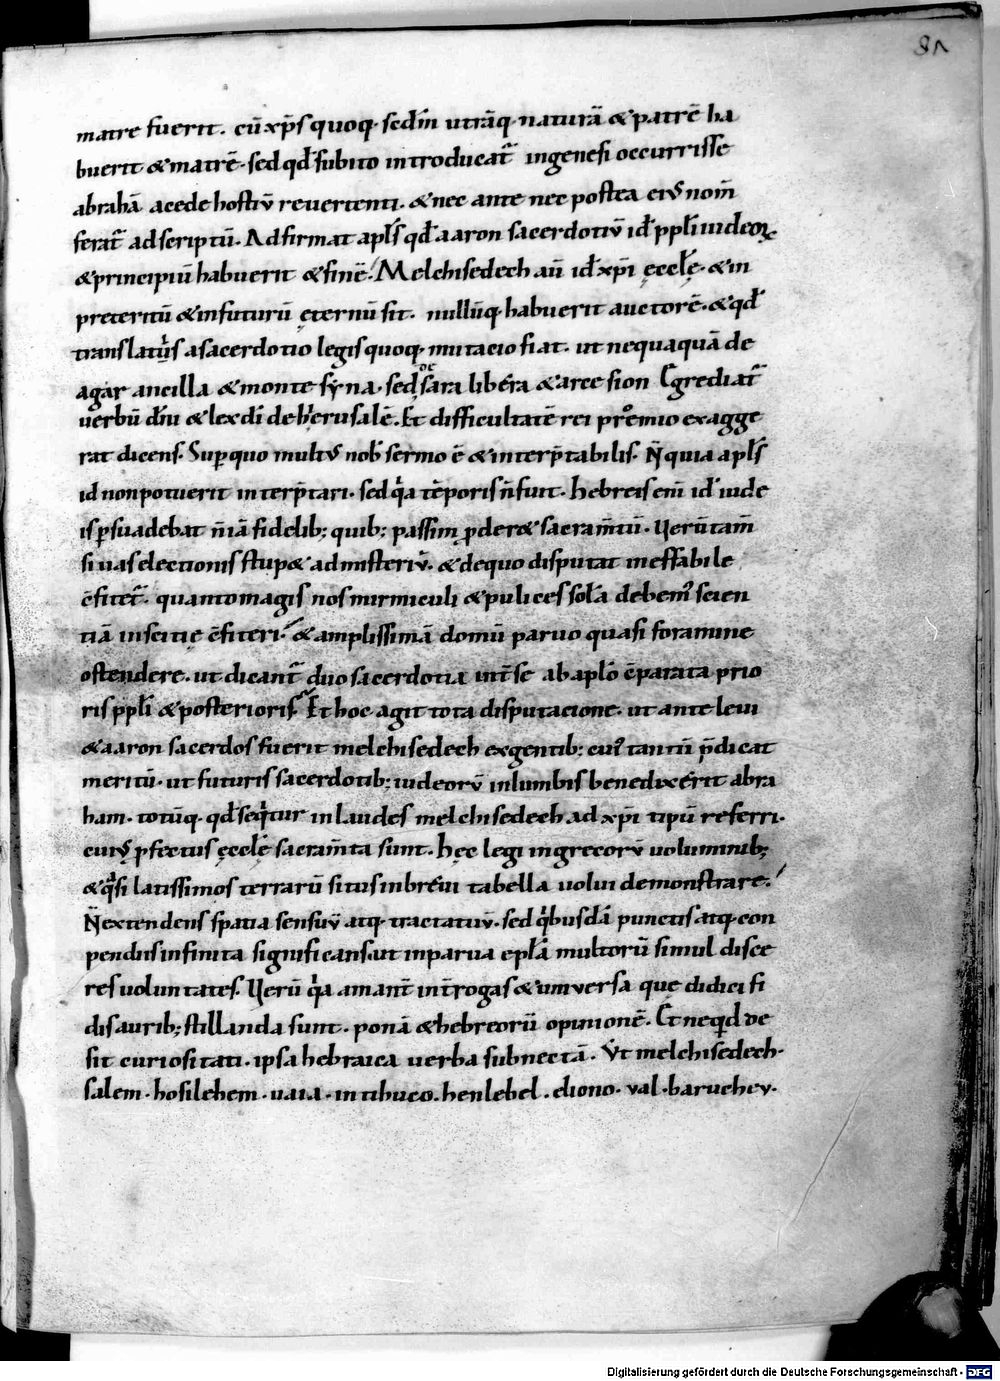 81
matre fuerit. cū xp̄s quoq· sedm̄ utrāq· naturā & patrē ha
buerit & matrē· sed qd̄ subito introducat᷑ in genesi occurrisse
abrahā a cede hostiū reuertenti. & nec ante nec postea eiꝰ nom̄
ferat᷑ ad scriptū. Adfirmat apl̄s qd̄ aaron sacerdotiū id ̄ ppl̄i iudeoꝝ
& principiū habuerit & finē. Melchisedech aū id ̄ xp̄i ęccl̄ę· & in
preteritū & in futurū ęternū sit. nullūq· habuerit auctorē· & qd̄
translatꝰ is a sacerdotio legis quoq· mutacio fiat. ut nequaquā de
agar ancilla & monte syna· sed de sara libera & arce sion Egrediat᷑
uerbū dn̄i & lex dī de hierusalē. Et difficultatē rei prohemio exagge
rat dicens. Sup quo multꝰ nob̄ sermo ē & interp̄tabilis. N̄ quia apl̄s
id non potuerit interp̄tari. sed qͥa tēporis n̄ fuit. hebreis eni ̄ id ̄ iude
is p̱suadebat n̄ iā fidelib; quib; passim p̱der& sacram̄tū. Uerūtam̄
si uas electionis stup& ad misteriū. & de quo disputat ineffabile
c̄fitet᷑. quanto magis nos uirmiculi & pulices solā debemꝰ scien
tiā inscitię c̄fiteri. & amplissimā domū paruo quasi foramine
ostendere. ut dicant᷑ duo sacerdotia int̄ se ab apl̄o c̄parata prio
ris ppl̄i & posterioris. Et hoc agit tota disputacione· ut ante leui
& aaron sacerdos fuerit melchisedech ex gentib; cuiꝰ tantū p̄dicat
meritū· ut futuris sacerdotib; iudeorū in lumbis benedixerit abra
ham· totūq· qd̄ seqͥtur in laudes melchisedech ad xp̄i tipū referri.
cuiꝰ p̱fectus ęccl̄ę sacram̄ta sunt. hęc legi in grecorū uoluminib;
& qͣsi latissimos terrarū situs in breui tabella uolui demonstrare.
N̄ extendens spatia sensuū atq· tractatuū. sed qͥbusdā punctis atq· con
pendiis infinita significans· ut in parua epl̄a multorū simul disce
res uoluntates. Uerū qͥa amant̄ int̄rogas & uniuersa que didici fi
dis aurib; stillanda sunt· ponā & hebreorū opinionē. Et ne qͥd de
sit curiositati· ipsa hebraica uerba subnectā. Ut melchisedech·
salem· hosilehem· uaia· in tihuco. henlebel. eliono· val· baruchev·
Digitalisierung gefördert durch die Deutsche Forschungsgemeinschaft - DFG